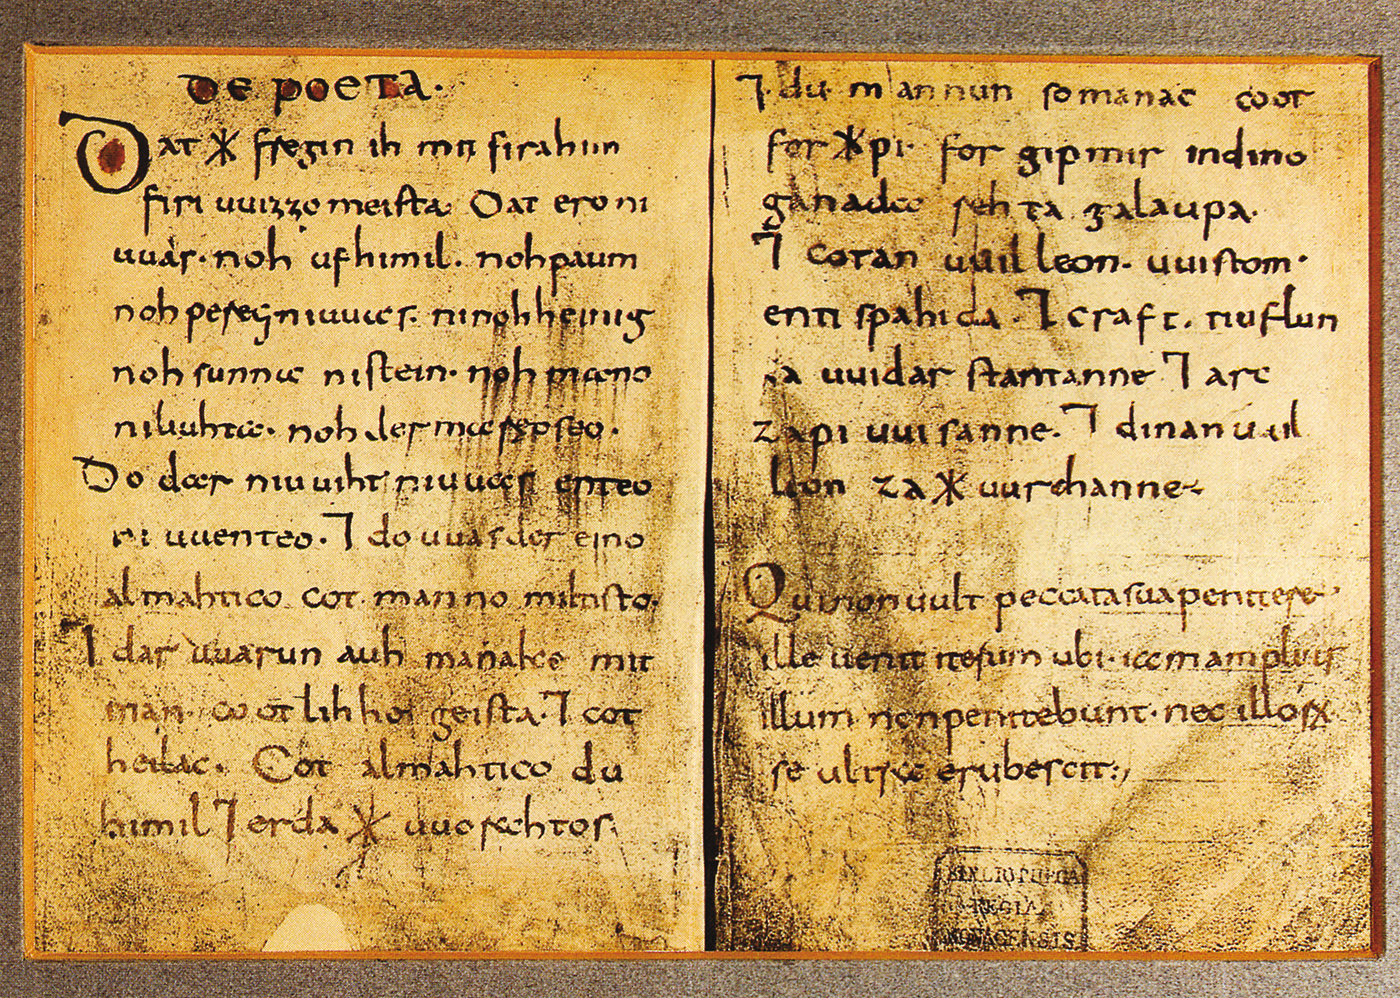 DE POETA.
Dat * fregin ih mit firahim
firi uuizzo meista. Dat ero ni
uuas. noh ufhimil. noh paum
noh pereg ni uuas. ni noh heinig
noh sunna ni stein. noh mano
ni liuhta. noh der mareo seo.
Do dar niuuiht ni uuas enteo
ni uuenteo. ⁊ do uuas der eino
almahtico cot manno miltisto.
⁊ dar uuarun auh manake mit
man. cootlihhe geista. ⁊ cot
heilac. Cot almahtico du
himil ⁊ erda * uuorahtos.
⁊ du mannun so manac coot
for * pi. for gip mir indino
ganada rehta galaupa.
⁊ cotan uuilleon. uuistom.
enti spahida. ⁊ craft. tiuflun
za uuidar stantanne ⁊ arc
za pi uuisanne. ⁊ dinan uuil
leon za * uurchanne.
Qui non uult peccata sua penitere.
ille uenit iterum ubi. iam amplius
illum non penitebunt. nec illorum
se ultra erubescit.
BIBLIOTHECA
REGIA
MONACENSIS